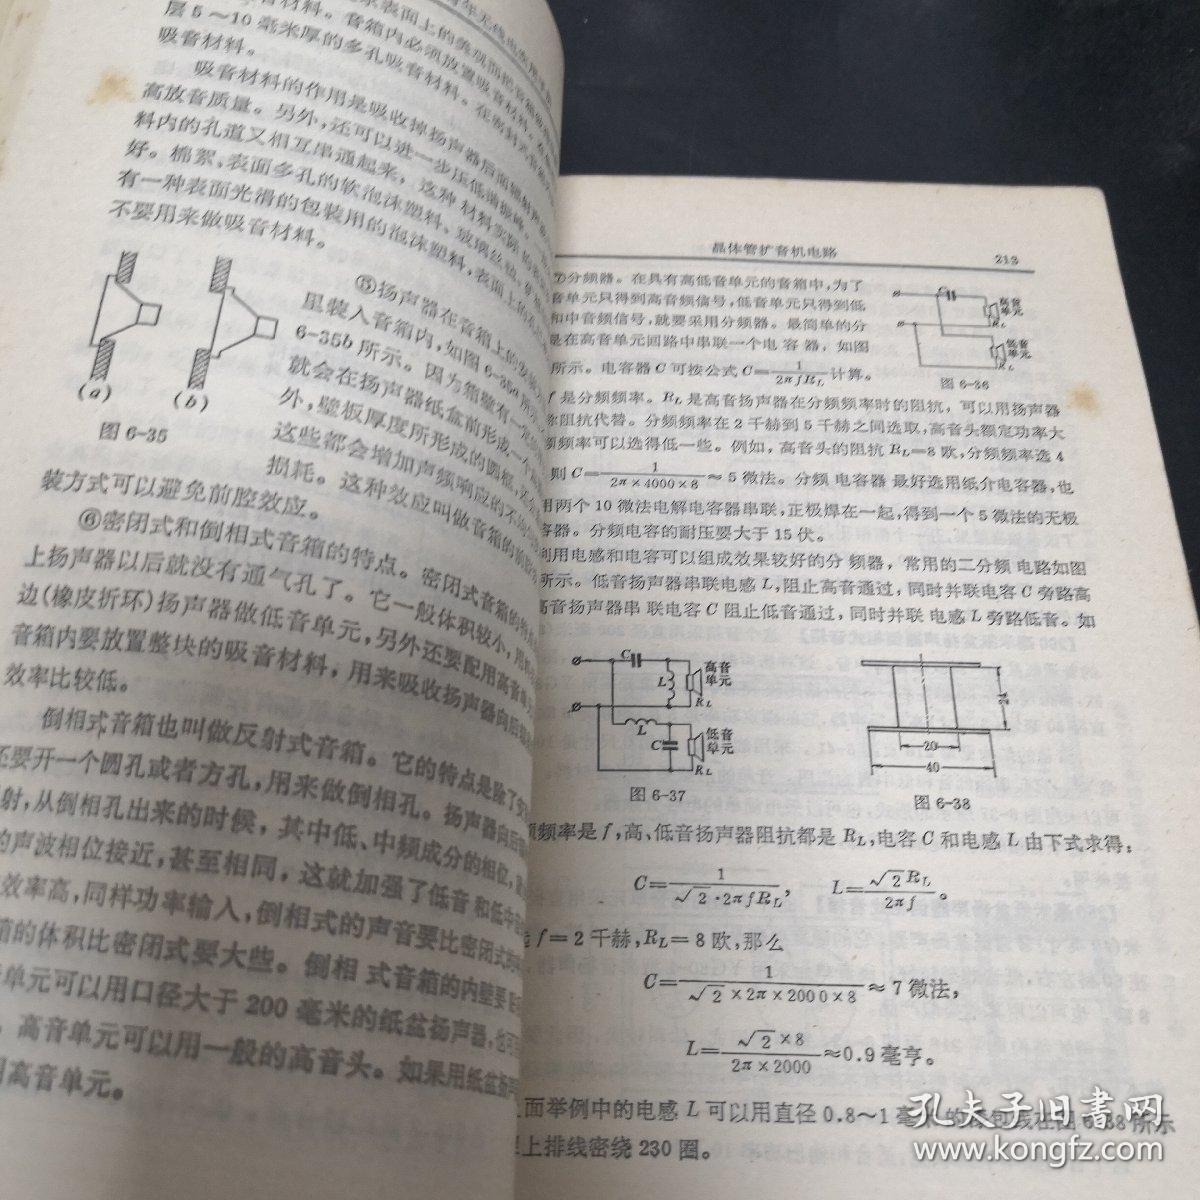 层5～10毫米厚的多孔吸音材料。在
吸音材料。
吸音材料的作用是吸收掉扬声器后面
高放音质量。另外,还可以进一步压低谐振峰。
料内的孔道又相互串通起来，这种材料实际
好。棉絮,表面多孔的软泡沫塑料、玻璃丝
有一种表面光滑的包装用的泡沫塑料,表面上的
不要用来做吸音材料。
(a)
(b)
图6-35
⑤扬声器在音箱上的安装
里装入音箱内,如图6-35a所
6-35b所示。因为箱壁有一定
就会在扬声器纸盆前形成一个
外,壁板厚度所形成的圆框,
这些都会增加声频响应的不均匀
损耗。这种效应叫做音箱的前腔
装方式可以避免前腔效应。
⑥密闭式和倒相式音箱的特点。密闭式音箱的特
上扬声器以后就没有通气孔了。它一般体积较小,用
边(橡皮折环)扬声器做低音单元,另外还要配用高音单
音箱内要放置整块的吸音材料，用来吸收扬声器向后
效率比较低。
倒相式音箱也叫做反射式音箱。它的特点是除了
还要开一个圆孔或者方孔,用来做倒相孔。扬声器向后
射,从倒相孔出来的时候，其中低、中频成分的相位,
的声波相位接近,甚至相同，这就加强了低音和低中音
效率高,同样功率输入,倒相式的声音要比密闭式
箱的体积比密闭式要大些。倒相式音箱的内壁要
单元可以用口径大于200毫米的纸盆扬声器,也可
。高音单元可以用一般的高音头。如果用纸盆扬声
高音单元。
晶体管扩音机电路
213
⑦分频器。在具有高低音单元的音箱中,为了
音单元只得到高音频信号,低音单元只得到低
和中音频信号,就要采用分频器。最简单的分
是在高音单元回路中串联一个电容器，如图
所示。电容器C可按公式C=1/2πfRL计算。
C
高音单元
RL
低音单元
RL
图6-36
f是分频频率。RL是高音扬声器在分频频率时的阻抗，可以用扬声器
称阻抗代替。分频频率在2千赫到5千赫之间选取,高音头额定功率大
频频率可以选得低一些。例如，高音头的阻抗RL=8欧,分频频率选4
则C=1/2π×4000×8≈5微法。分频电容器最好选用纸介电容器,也
用两个10微法电解电容器串联,正极焊在一起,得到一个5微法的无极
容器。分频电容的耐压要大于15伏。
利用电感和电容可以组成效果较好的分频器，常用的二分频电路如图
所示。低音扬声器串联电感L,阻止高音通过，同时并联电容C旁路高
高音扬声器串联电容C阻止低音通过，同时并联电感L旁路低音。如
C
L
高音单元
RL
L
C
低音单元
RL
图6-37
20
40
24
图6-38
频频率是f,高、低音扬声器阻抗都是RL,电容C和电感L由下式求得:
C=1/√2·2πfRL, L=√2RL/2πf。
f=2千赫,RL=8欧,那么
C=1/√2×2π×2000×8≈7微法,
L=√2×8/2π×2000≈0.9毫亨。
面举例中的电感L可以用直径0.8～1毫米的漆包线在图6-38所示
上排线密绕230圈。
孔夫子旧书网
www.kongfz.com